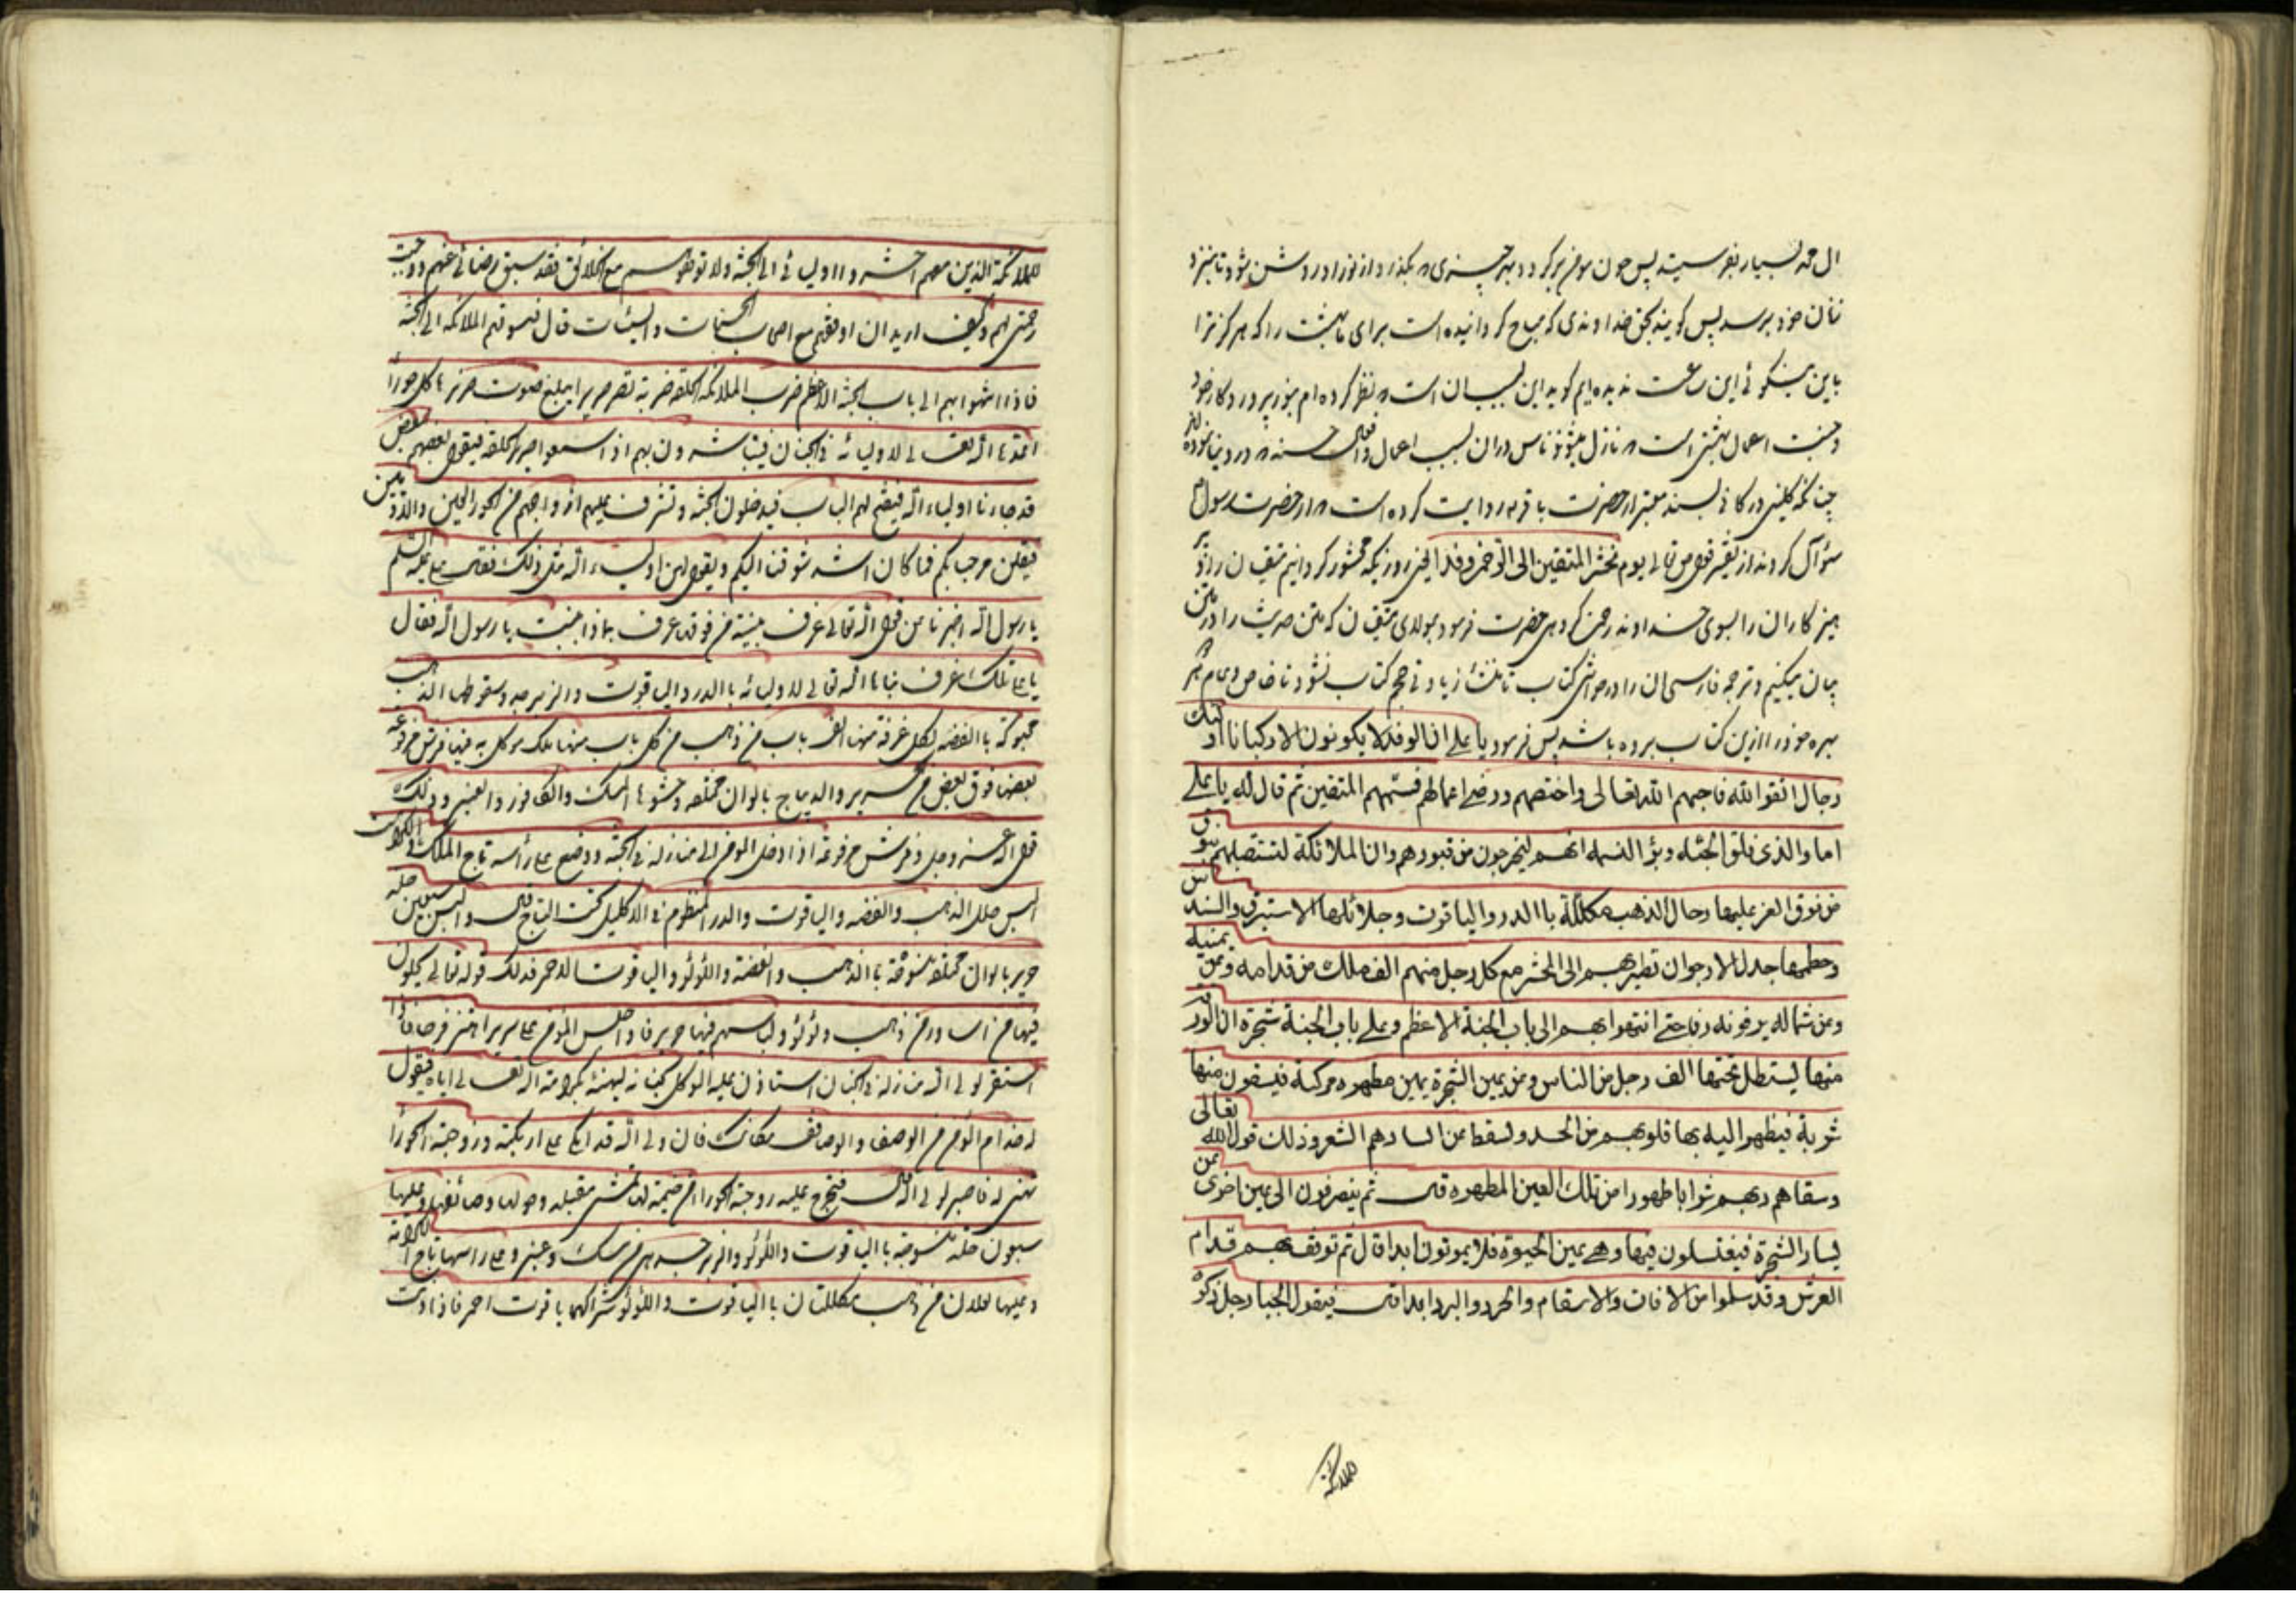 ال محمد بسیار بفرسیته پس چون مومن برکردد بهر چیزی که بکذرد از نور او روشن شود تا بنزد
زنان خود برسد پس کویند بحق خداوندی که مباح کردانیده است برای ما بهشت را که هرکز ترا
باین نیکوئی این ساعت ندیده ایم کوید این بسبب آن است که نظر کرده ام بنور پروردکار خود
و جنت اعمال بهشتی است که نازل میشود ناس در آن بسبب اعمال و افعال حسنه که در دنیا نموده اند
چنانکه کلینی در کافی بسند معتبر از حضرت باقر م روایت کرده است که از حضرت رسول م
سؤال کردند از تفسیر قول حق تعالی یوم نحشر المتقین الی الرحمن وفدا یعنی روزیکه محشور کردانیم متقیان و پر
هیز کاران را بسوی خداوند رحمن کروهی حضرت فرمود مولای متقیان که متن حدیث را در متن
بیان میکنیم و ترجمه فارسی آن را در حواشی کتاب تا باعث زیادتی حجم کتاب نشود تا خاص و عام هر
بهره خود را از این کتاب برده باشد پس فرمود یا علی ان الوفد لا یکونون الا رکبانا اولئک
رجال اتقوا الله فاحبهم الله تعالی واختصهم ورضی اعمالهم فسمهم المتقین ثم قال له یا علی
اما والذی فلق الحبه وبرؤ النسمه انهم لیخرجون من قبورهم وان الملائکة لتستقبلهم بنوق
من نوق العز علیها رحال الذهب مکللة باالدر والیاقوت وجلائلها الاستبرق والسندس
وخطمها جدل الارجوان تطیر بهم الی المحشر مع کل رجل منهم الف ملک من قدامه وعن یمنیه
وعن شماله یزفونه زفا حتی انتهوا بهم الی باب الجنة الاعظم وعلی باب الجنة شجرة ان الورق
منها لیستظل تحتها الف رجل من الناس وعن یمین الشجرة عین مطهره مزکیة فیسقون منها
شربة فیطهر الله بها قلوبهم من الحسد ویسقط من ابشارهم الشعر وذلک قول الله تعالی
وسقاهم ربهم شرابا طهورا من تلک العین المطهره قال ثم ینصرفون الی عین اخری عن
یسار الشجرة فیغتسلون فیها وهی عین الحیوة فلا یموتون ابدا قال ثم توقف بهم قدام
العرش وقد سلموا من الافات والاسقام والحر والبرد ابدا قال فیقول الجبار جل ذکره
للملائکة
للملائکة الذین معهم احشروا اولیائی الی الجنة ولا توقفوهم مع الخلائق فقد سبق رضائی عنهم ووجبت
رحمتی لهم وکیف ارید ان اوقفهم مع اصحاب الحسنات والسیئات قال فیسوقهم الملائکه الی الجنة
فاذا انتهوا بهم الی باب الجنة الاعظم ضرب الملائکه الحلقة ضربة تصر صریرا یبلغ صوت صریرها کل حورا
اعدها الله تعالی لاولیائه فی الجنان فیتباشرون بهم اذا سمعوا صریر الحلقه فیقول بعضهم لبعض
قد جاءنا اولیاء الله فیفتح لهم الباب فیدخلون الجنة وتشرف علیهم ازواجهم من الحور العین والادمیین
فیقلن مرحبا بکم فما کان اشد شوقنا الیکم ویقول لهن اولیاء الله مثل ذلک فقال علی علیه السلم
یا رسول الله اخبرنا عن قول الله تعالی غرف مبنیة من فوقها غرف بماذا بنیت یا رسول الله فقال
یا علی تلک غرف بناها الله تعالی لاولیائه باالدر والیاقوت والزبرجد وسقوفها الذهب
محبوکة باالفضه لکل غرفة منها الف باب من ذهب من کل باب منها ملک موکل به فیها فرش مرفوعه
بعضها فوق بعض من الحریر والدیباج بالوان مختلفه وحشوها المسک والکافور والعنبر وذلک
قول الله عز وجل وفرش مرفوعة اذا دخل المومن الی منازله فی الجنة ووضع علی رأسه تاج الملک والکرامت
البس حلل الذهب والفضه والیاقوت والدر المنظوم فی الاکلیل تحت التاج قال والبس سبعین حله
حریر بالوان مختلفة منسوقة باالذهب والفضة واللؤلؤ والیاقوت الاحمر فذلک قوله تعالی یحلون
فیها من اساور من ذهب ولؤلؤ ولباسهم فیها حریر فاذا جلس المؤمن علی سریره اهتز سریره فرحا فاذا
استقر لولی الله منازله فی الجنان استاذن علیه الموکل بجنانه لیهنئه بکرامة الله تعالی ایاه فیقول
له خدام المؤمن من الوصفاء والوصائف مکانک فان ولی الله قد اتکی علی اریکته وزوجته الحورا
تهنی له فاصبر لولی الله قال فتخرج علیه زوجته الحورا من خیمة لها تمشی مقبله وحولها وصائفها وعلیها
سبعون حلة منسوجة باالیاقوت واللؤلؤ والزبرجد هی من مسک وعنبر وعلی راسها تاج الکرامة
وعلیها نعلان من ذهب مکللتان باالیاقوت واللؤلؤ شراکهما یاقوت احمر فاذا دنت